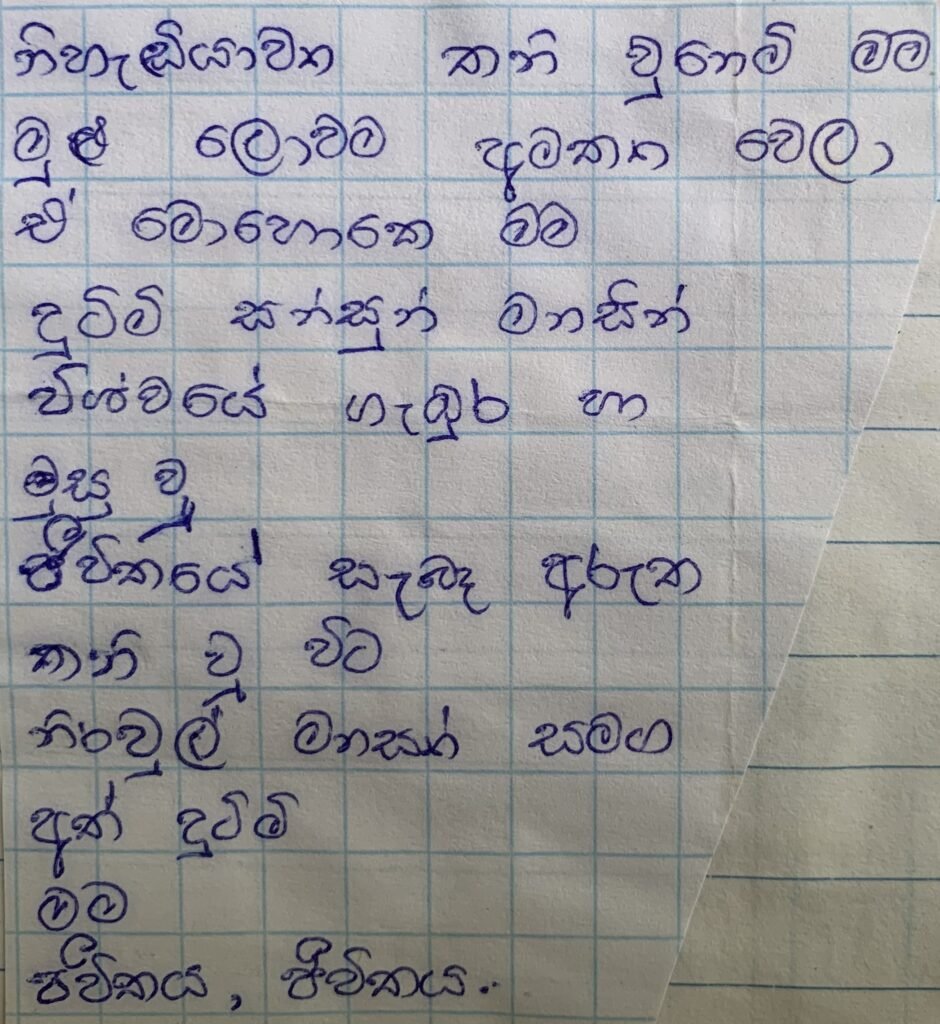 නිහැඬියාවත තනි වුනෙමි මම
මුළු ලොවම අමතක වෙලා
ඒ මොහොතෙ මම
දුටිමි සන්සුන් මනසින්
විශ්වයේ ගැඹුර හා
මුසු වූ
ජීවිතයේ සැබෑ අරුත
තනි වූ විට
නිරවුල් මනසක් සමග
අත් දුටිමි
මම
ජීවිතය, ජීවිතය.